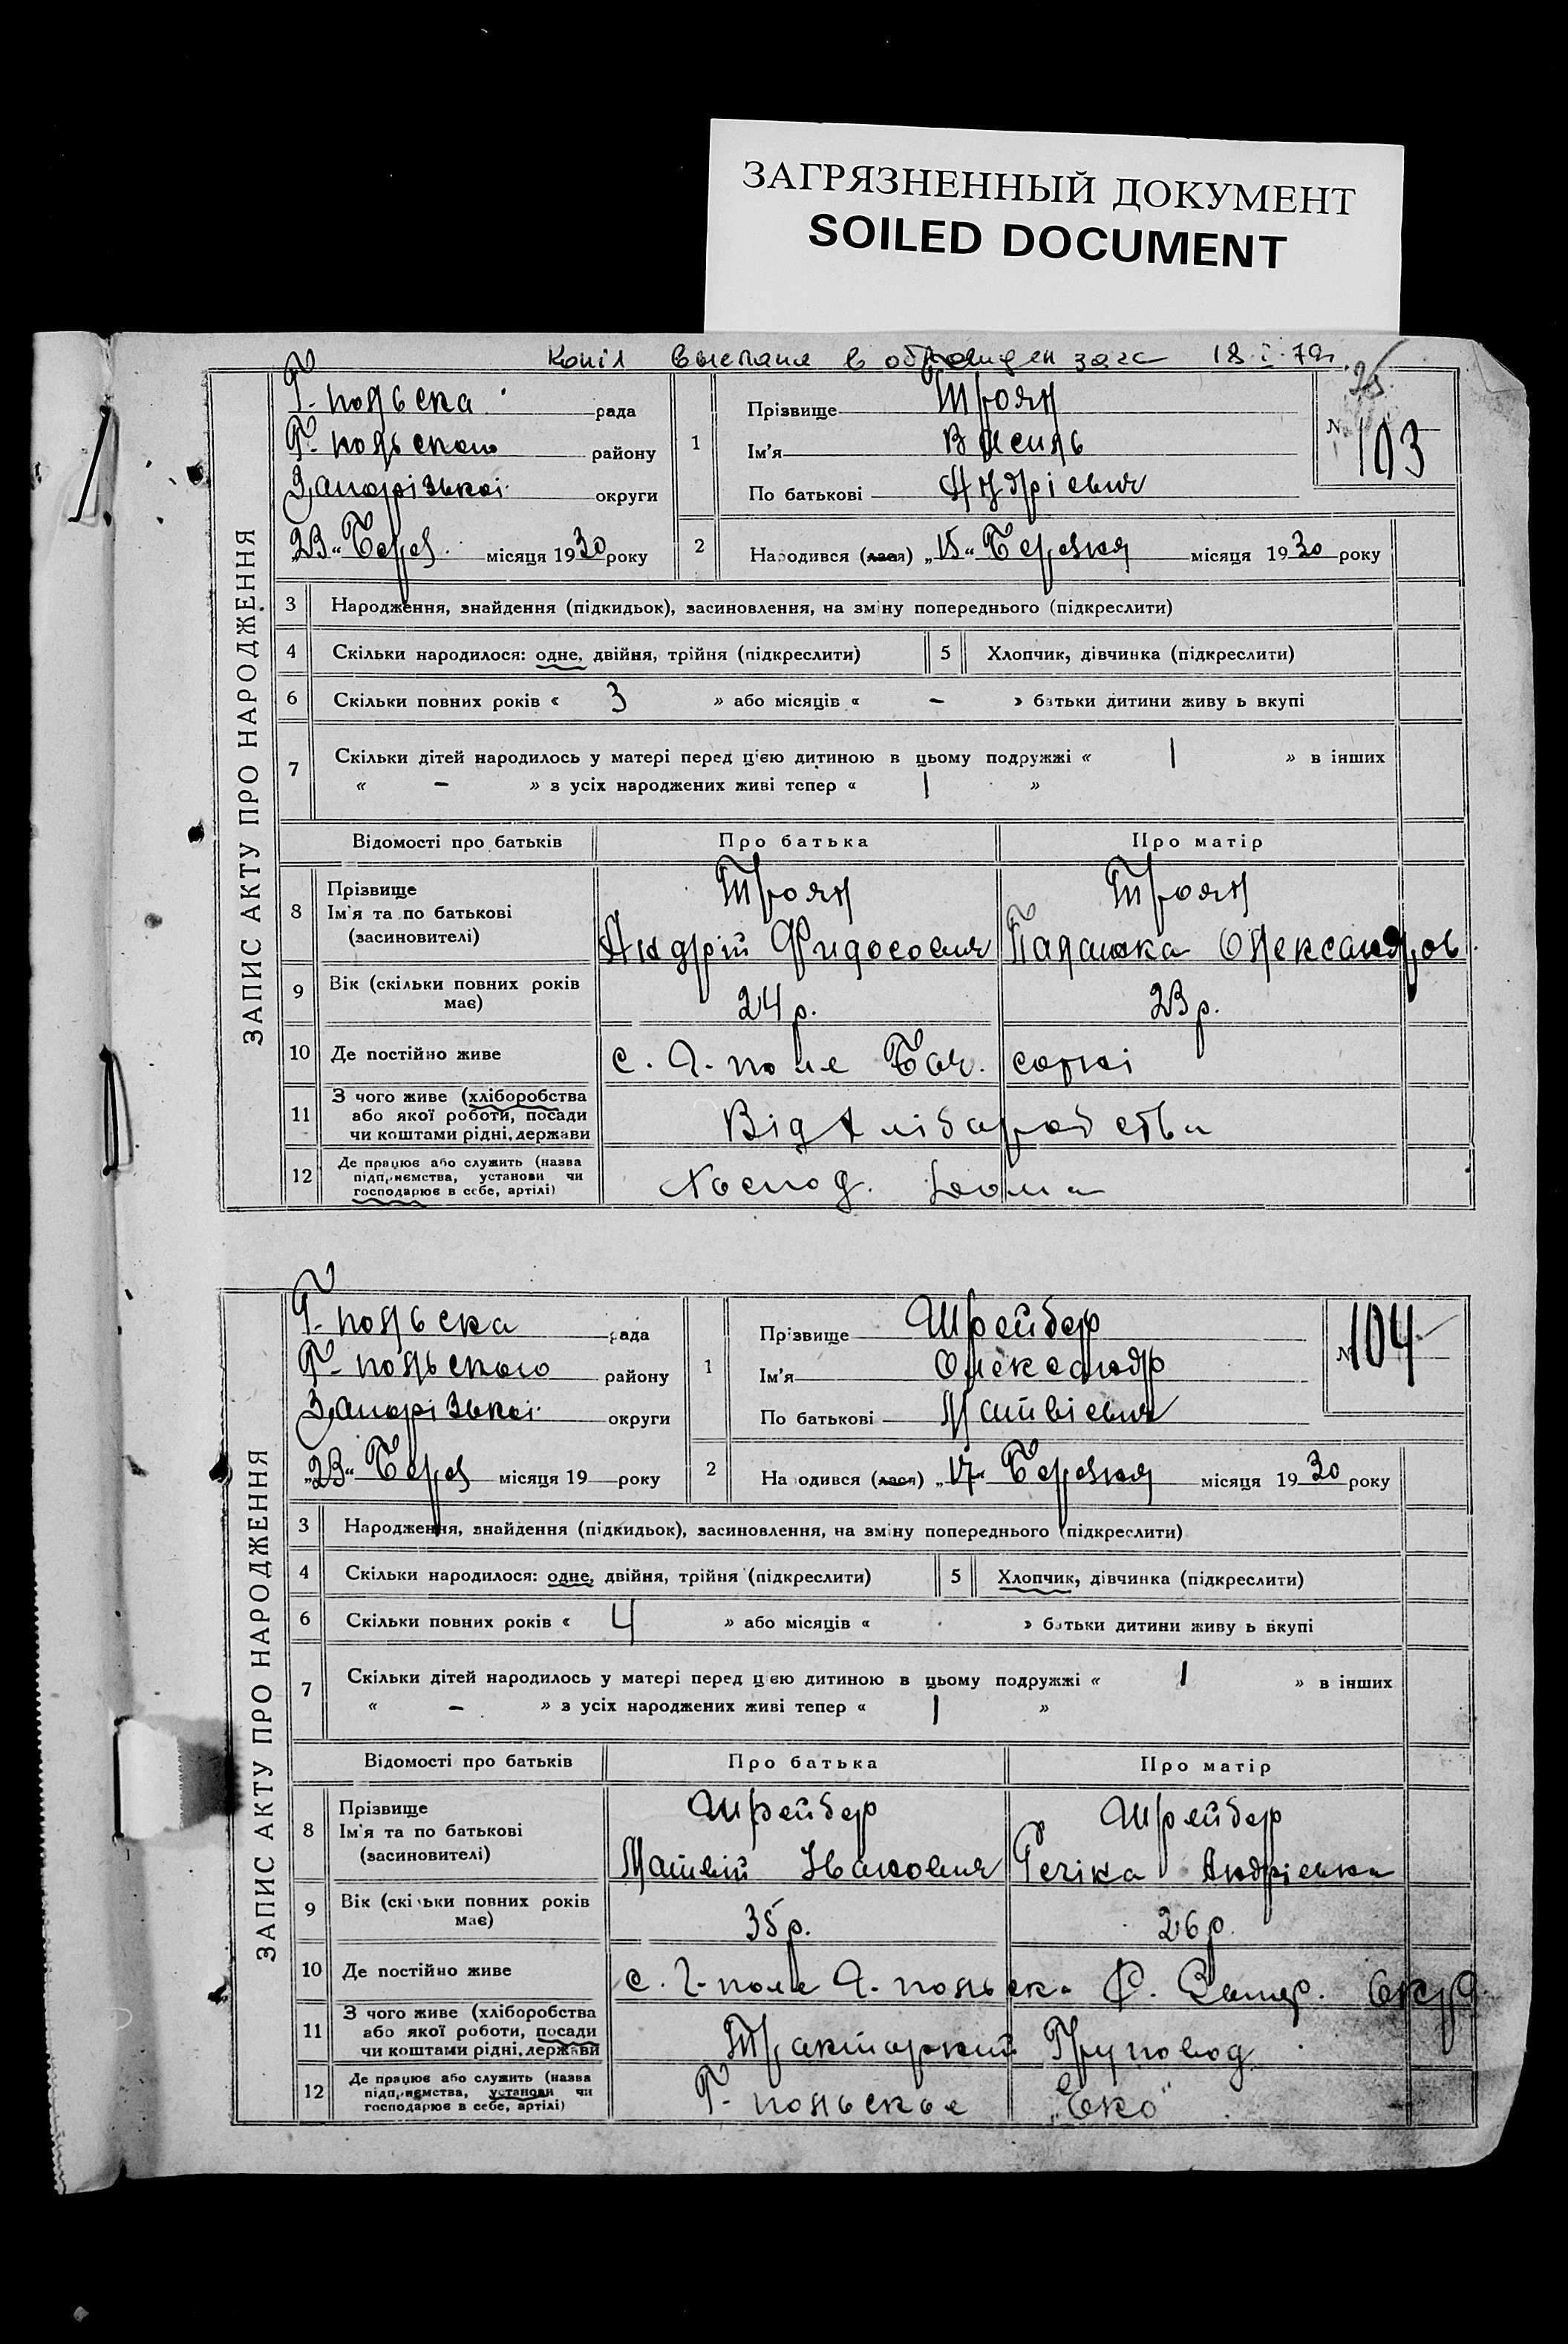 ЗАГРЯЗНЕННЫЙ ДОКУМЕНТ
SOILED DOCUMENT
Копія выслана в загс 18.I.79г.
ЗАПИС АКТУ ПРО НАРОДЖЕННЯ
Г-польска рада
Г-польского району
Запорізької округи
„23" Берез. місяця 1930 року
1
Прізвище Троян
Ім'я Василь
По батькові Андрієвич
№ 103
2
Народився (лася) „15" Березня місяця 1930 року
3 Народження, знайдення (підкидьок), засиновлення, на зміну попереднього (підкреслити)
4 Скільки народилося: одне, двійня, трійня (підкреслити)
5 Хлопчик, дівчинка (підкреслити)
6 Скільки повних років « 3 » або місяців « – » батьки дитини живу ь вкупі
7 Скільки дітей народилось у матері перед цією дитиною в цьому подружжі « 1 » в інших
« – » з усіх народжених живі тепер « 1 »
Відомості про батьків Про батька Про матір
8 Прізвище
Ім'я та по батькові
(засиновителі)
Троян
Андрій
Троян
Олександров
9 Вік (скільки повних років
має)
24 р. 23 р.
10 Де постійно живе
с. Г-поле сотні
11 З чого живе (хліборобства
або якої роботи, посади
чи коштами рідні, держави
Від хліборобства
12 Де працює або служить (назва
підприємства, установи чи
господарює в себе, артілі)
Господ. дома
ЗАПИС АКТУ ПРО НАРОДЖЕННЯ
Г-польска рада
Г-польского району
Запорізької округи
„23" Берез місяця 19 року
1
Прізвище Шрейбер
Ім'я Олександр
По батькові Матвієвич
№ 104
2
На одився (лася) „17" Березня місяця 1930 року
3 Народження, знайдення (підкидьок), засиновлення, на зміну попереднього (підкреслити)
4 Скільки народилося: одне, двійня, трійня (підкреслити)
5 Хлопчик, дівчинка (підкреслити)
6 Скільки повних років « 4 » або місяців « » батьки дитини живу ь вкупі
7 Скільки дітей народилось у матері перед цією дитиною в цьому подружжі « 1 » в інших
« – » з усіх народжених живі тепер « 1 »
Відомості про батьків Про батька Про матір
8 Прізвище
Ім'я та по батькові
(засиновителі)
Шрейбер
Матвій
Шрейбер
Андрієвна
9 Вік (скільки повних років
має)
35 р. 26 р.
10 Де постійно живе
с. Г-поле Г-польск. Р. Запор. Окр
11 З чого живе (хліборобства
або якої роботи, посади
чи коштами рідні, держави
Тракторний Груповод
12 Де працює або служить (назва
підприємства, установи чи
господарює в себе, артілі)
Г-польське